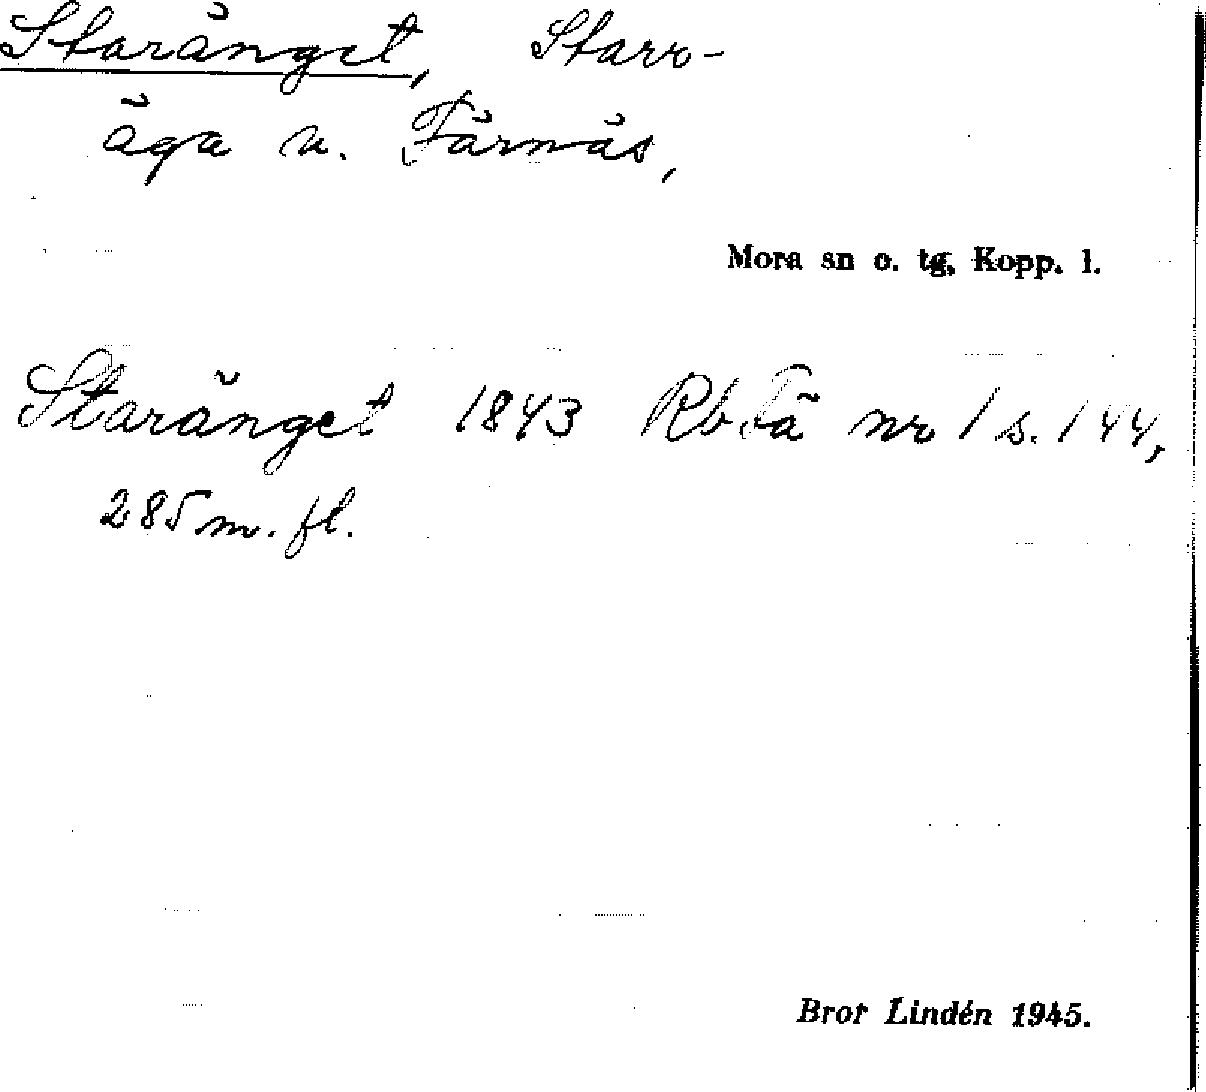 Staränget, Starr-
äga v. Färnäs,
Mora sn o. tg, Kopp. l.
Staränget 1843 Rb Fä nr 1 s. 144,
285 m. fl.
Bror Lindén 1945.